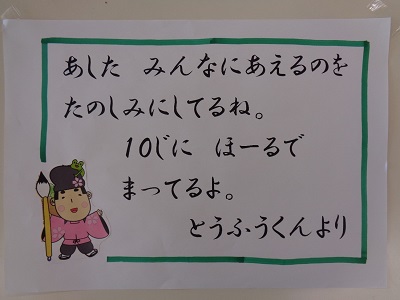 あした　みんなにあえるのを
たのしみにしてるね。
10じに　ほーるで
まってるよ。
とうふうくんより